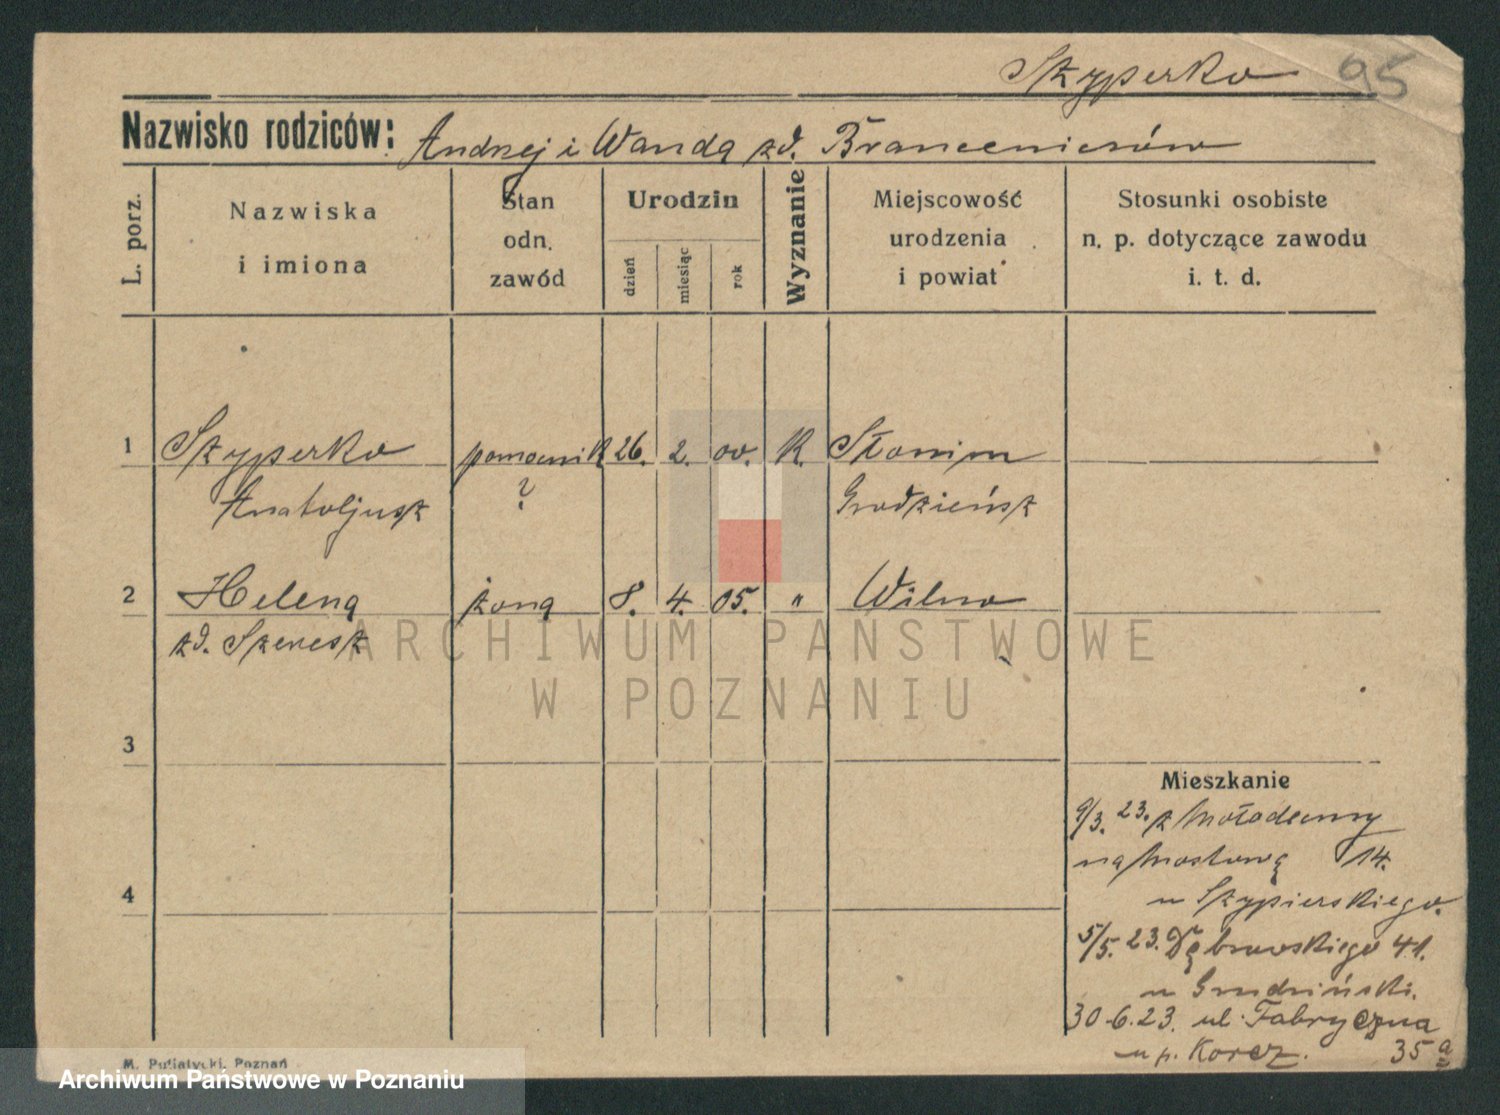 Szyperko 95
Nazwisko rodziców: Andrzej i Wanda zd.
L. porz.
Nazwiska
i imiona
Stan
odn.
zawód
Urodzin
dzień
miesiąc
rok
Wyznanie
Miejscowość
urodzenia
i powiat
Stosunki osobiste
n. p. dotyczące zawodu
i. t. d.
1 Szyperko pomocnik 26. 2. 00. K. Słonim
Anatoljusz ? Grodzieńsk
2 Helena żona 8. 4. 05. " Wilno
zd.
ARCHIWUM PAŃSTWOWE
W POZNANIU
3
Mieszkanie
9/3. 23. z Mołodeczny
na Mostową 14.
u Szypierskiego.
4
5/5. 23. Dąbrowskiego 41.
u Grudziński.
30-6.23. ul. Fabryczna
u p. Korcz. 35 a
M. Putiatycki, Poznań
Archiwum Państwowe w Poznaniu